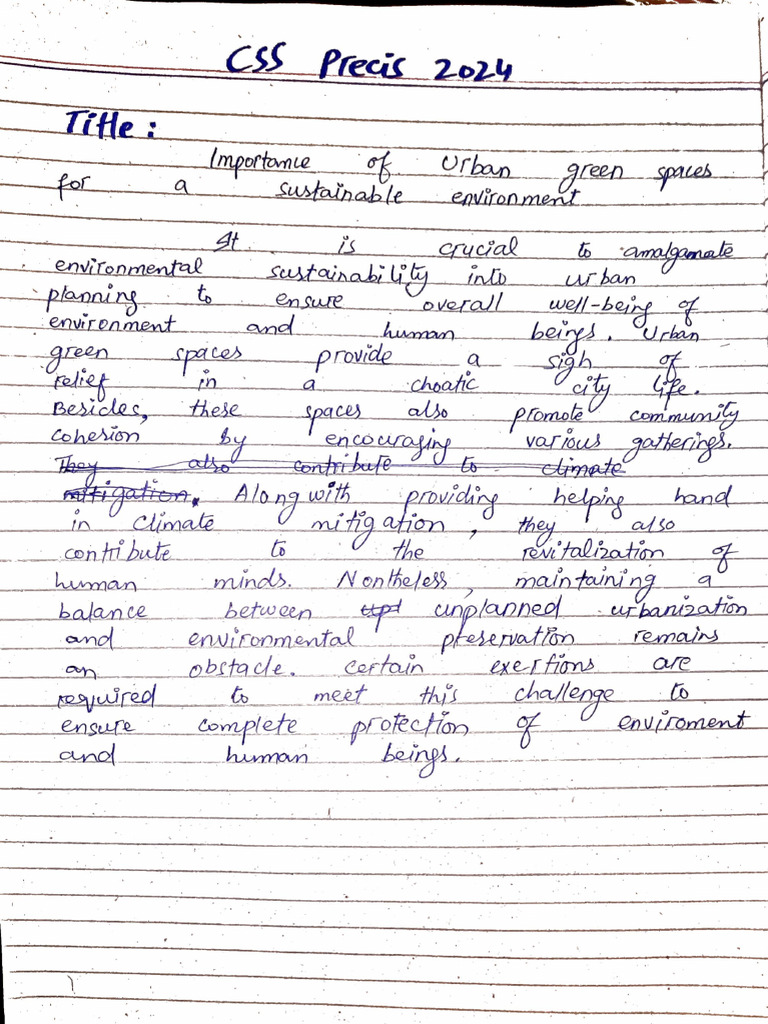 CSS Precis 2024
Title:
Importance of Urban green spaces
for a sustainable environment
It is crucial to amalgamate
environmental sustainability into urban
planning to ensure overall well-being of
environment and human beings. Urban
green spaces provide a sigh of
relief in a choatic city life.
Besides, these spaces also promote community
cohesion by encouraging various gatherings.
They also contribute to climate
mitigation. Along with providing helping hand
in climate mitigation, they also
contribute to the revitalization of
human minds. Nontheless, maintaining a
balance between unplanned urbanization
and environmental preservation remains
an obstacle. certain exertions are
required to meet this challenge to
ensure complete protection of enviroment
and human beings.